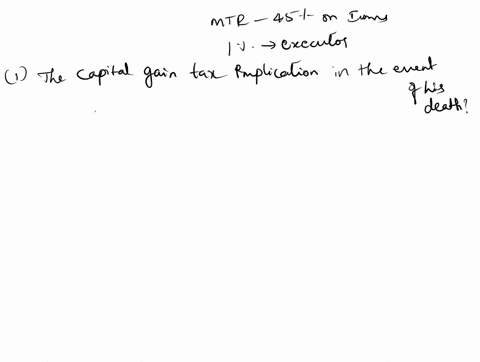 MTR - 45% on Income
1%. → executor
(1) The capital gain tax implication in the event
of his
death?